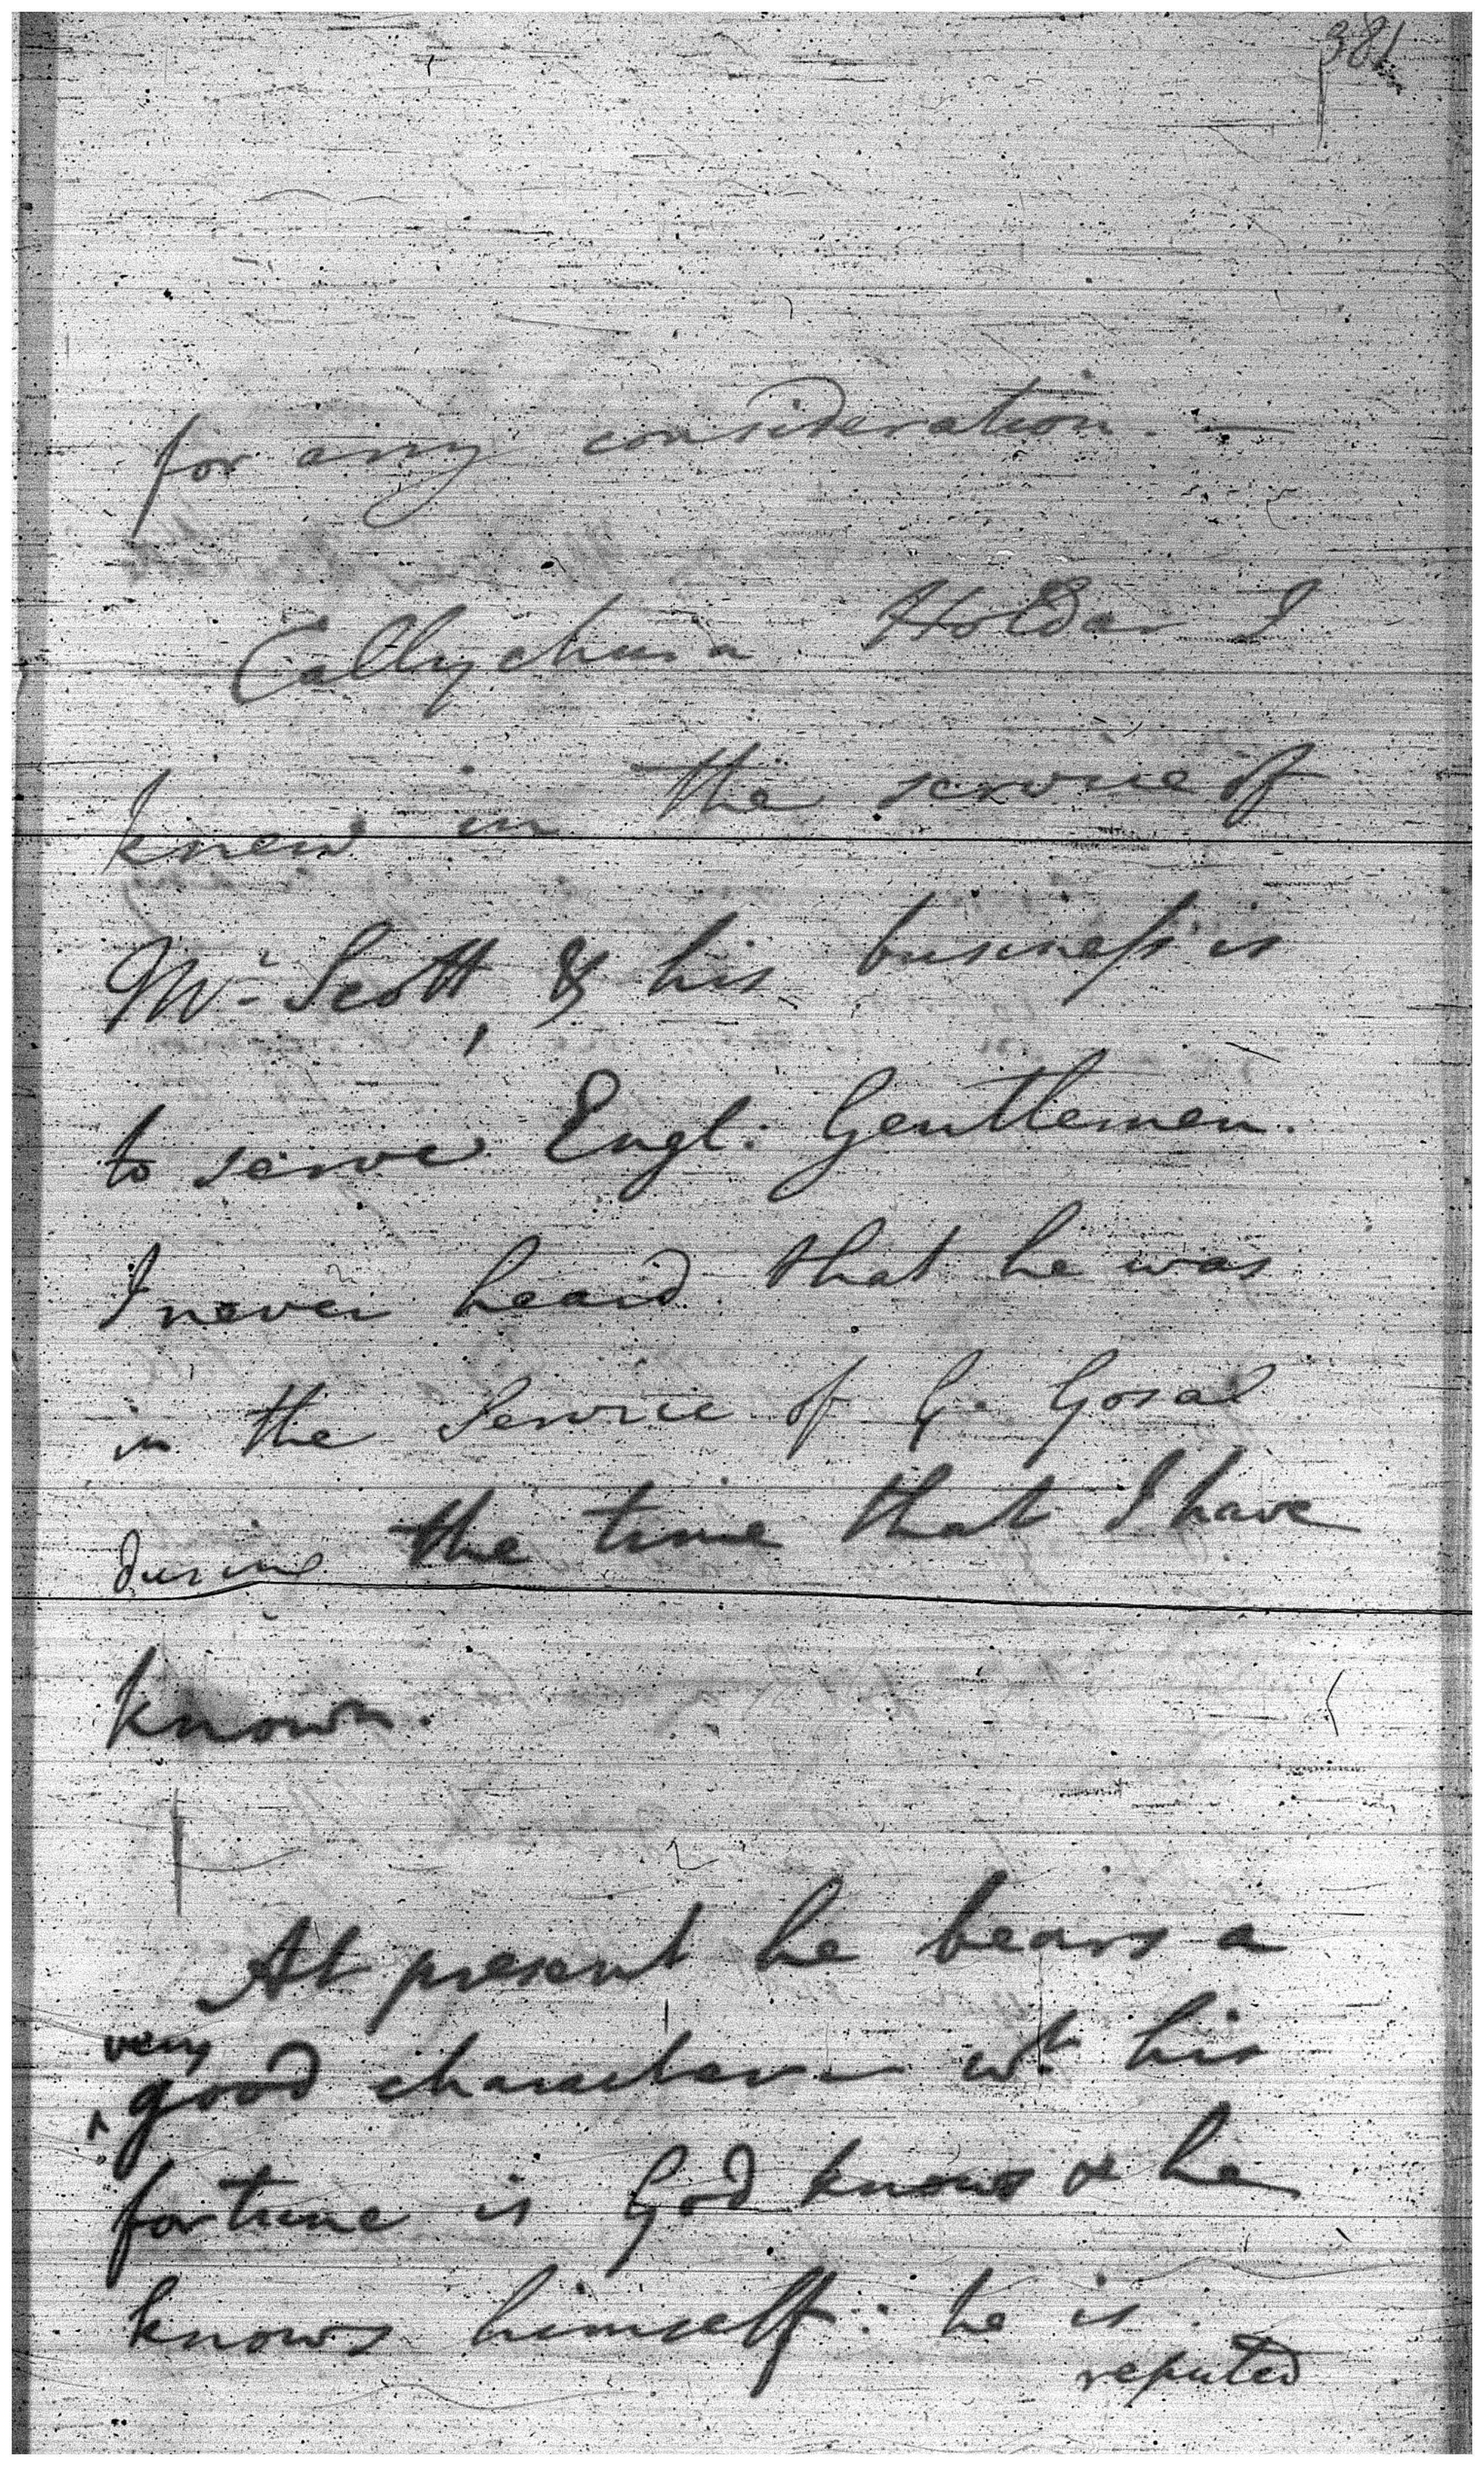 381
for any consideration. —
Callychurn Holdar I
knew in the service of
Mr. Scott, & his business is
to serve Engl. Gentlemen.
I never heard that he was
in the Service of G. Gosal
during the time that I have
known.
At present he bears a
very
good character — wt. his
fortune is God knows & he
knows himself: he is
reputed